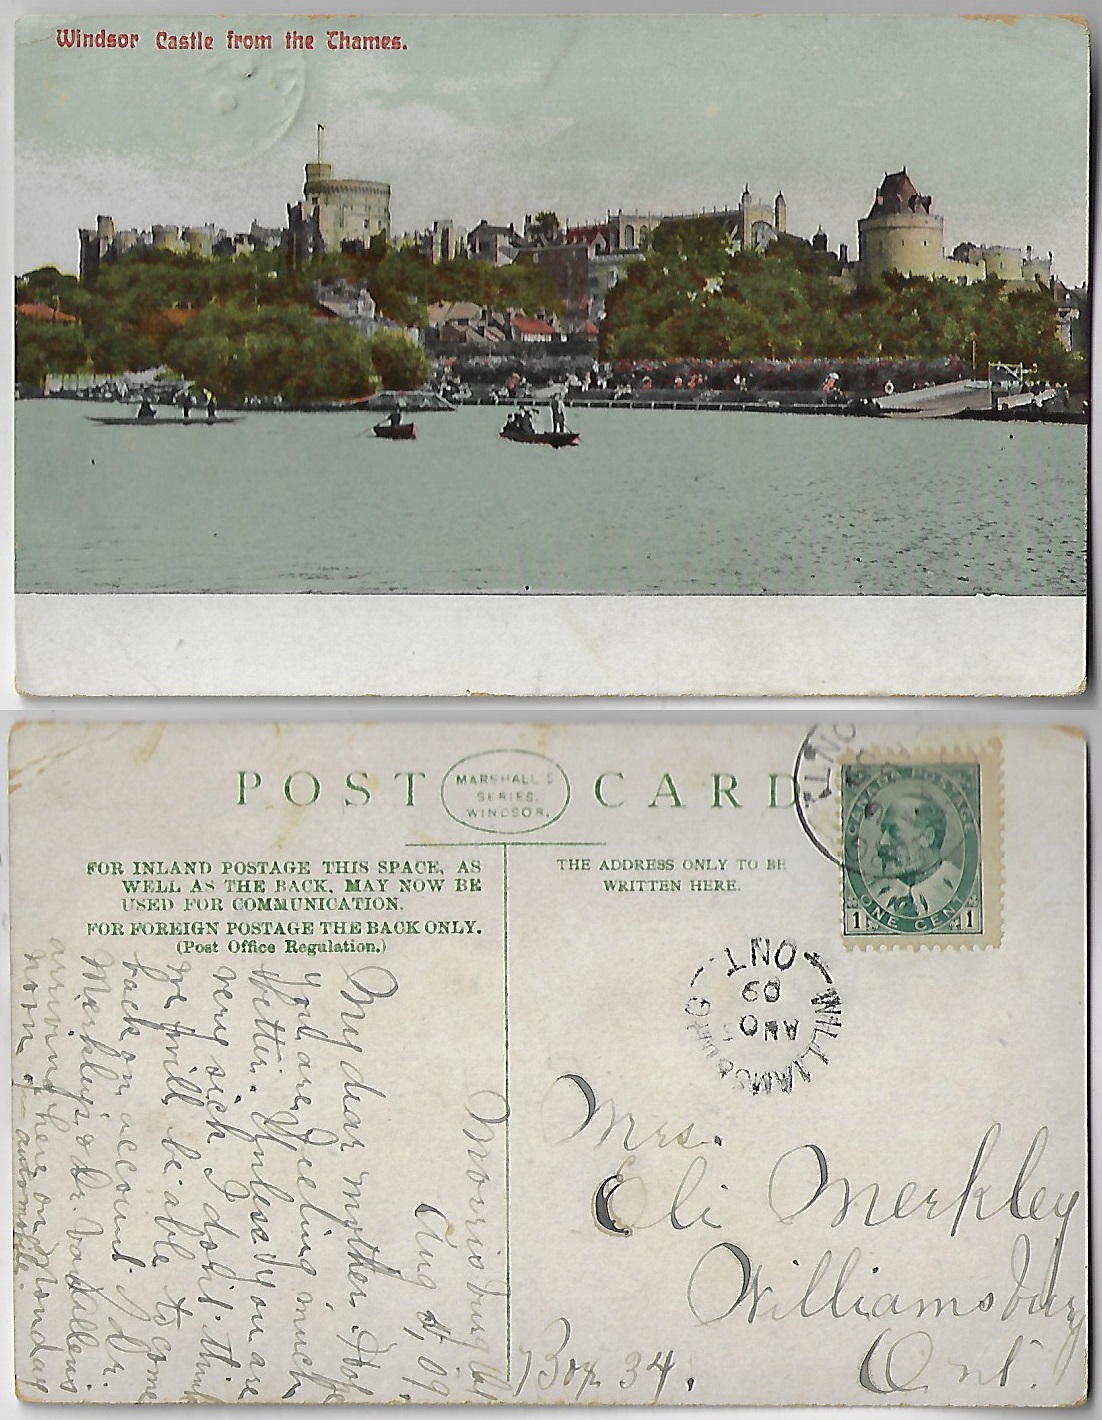 Windsor Castle from the Thames.
POST CARD
MARSHALL'S
SERIES.
WINDSOR.
FOR INLAND POSTAGE THIS SPACE, AS
WELL AS THE BACK, MAY NOW BE
USED FOR COMMUNICATION.
FOR FOREIGN POSTAGE THE BACK ONLY.
(Post Office Regulation.)
THE ADDRESS ONLY TO BE
WRITTEN HERE.
ONT
CANADA POSTAGE
1 ONE CENT 1
WILLIAMSBURG
ONT
AU
09
Morrisburg
Aug 09.
My dear mother. Hope
you are feeling much
better. Unless you are
very sick I don't think
we will be able to come
back on account of Dr.
Merkley's & Dr.
arriving here on Monday
noon automobile.
Mrs.
Eli Merkley
Williamsburg
Ont.
Box 34.